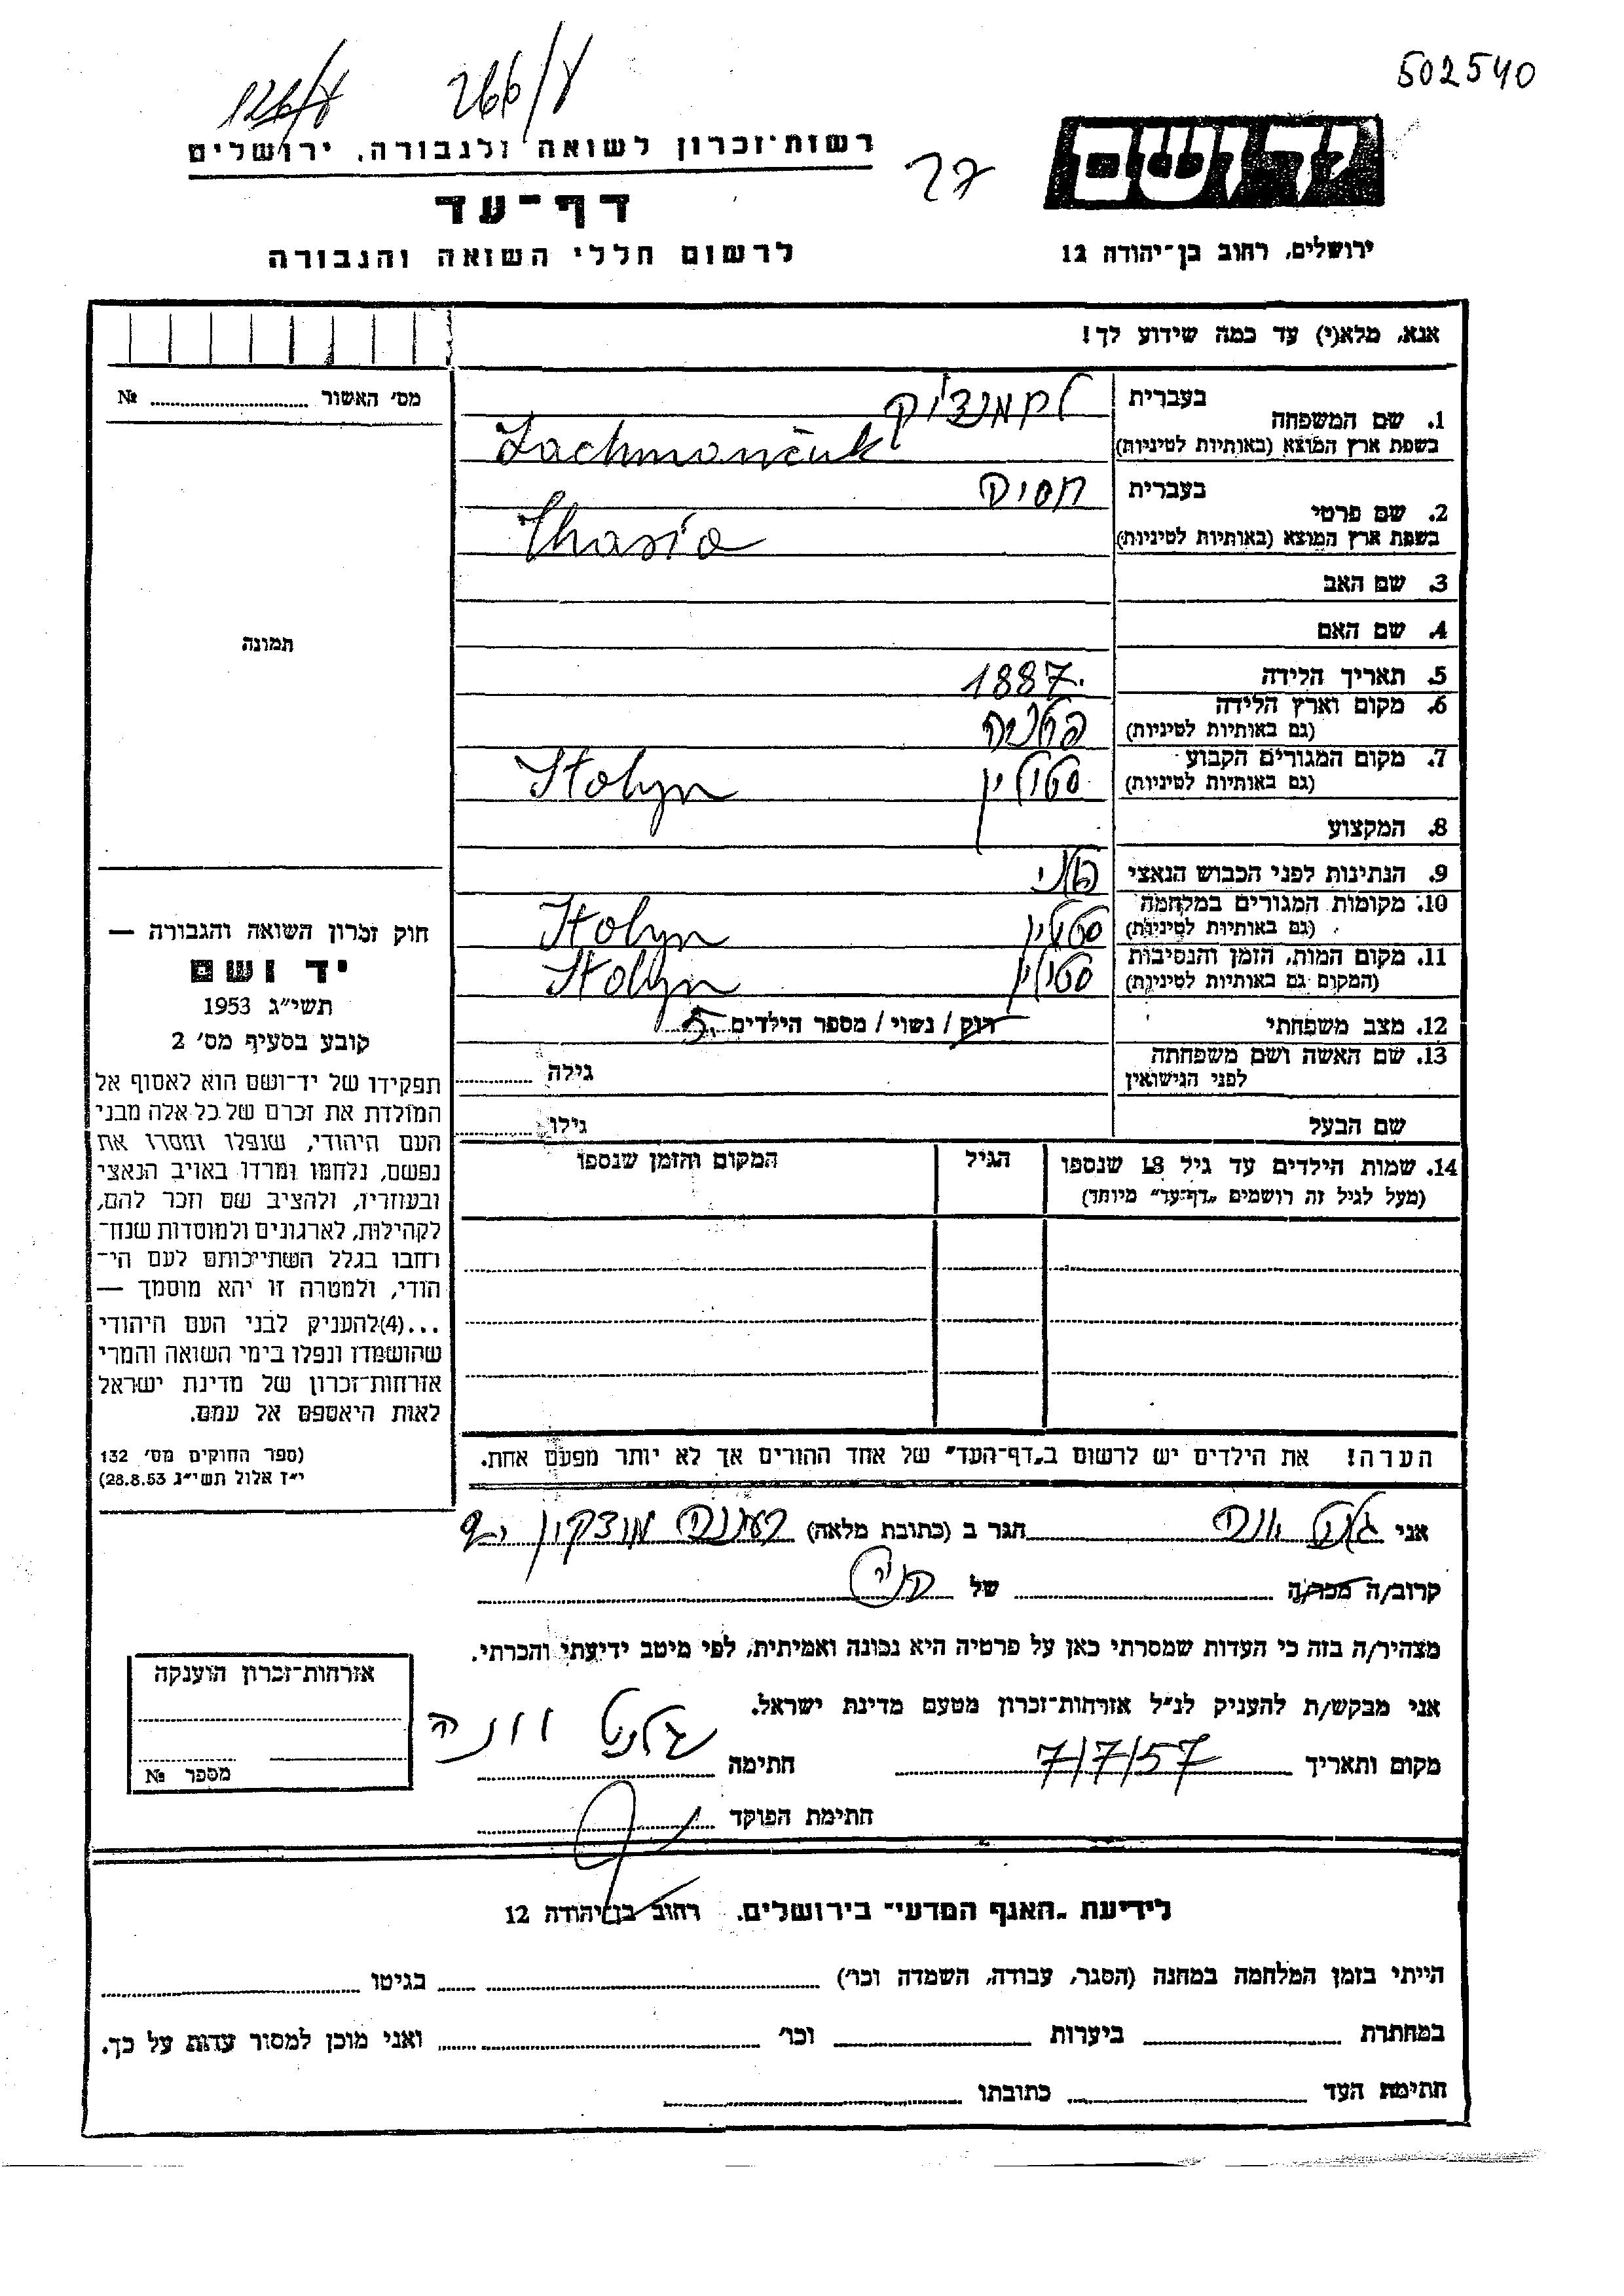 502540
126/γ 266/γ
רשות־זכרון לשואה ולגבורה, ירושלים
דף־עד
לרשום חללי השואה והגבורה
27
ידושם
ירושלים, רחוב בן־יהודה 12
אנא, מלא(י) עד כמה שידוע לך!
מס׳ האשור № 
תמונה
1. שם המשפחה בעברית
בשפת ארץ המוצא (באותיות לטיניות) Lachmančuk
2. שם פרטי בעברית חסיה
בשפת ארץ המוצא (באותיות לטיניות) Chasia
3. שם האב
4. שם האם
5. תאריך הלידה 1887
6. מקום וארץ הלידה
(גם באותיות לטיניות)
7. מקום המגורים הקבוע סטולין Stolyn
(גם באותיות לטיניות)
8. המקצוע
9. הנתינות לפני הכבוש הנאצי
10. מקומות המגורים במלחמה סטולין Stolyn
(גם באותיות לטיניות)
11. מקום המות, הזמן והנסיבות סטולין Stolyn
(המקום גם באותיות לטיניות)
12. מצב משפחתי רוק / נשוי / מספר הילדים 5
13. שם האשה ושם משפחתה גילה
לפני הנישואין
שם הבעל גילו
14. שמות הילדים עד גיל 18 שנספו הגיל המקום והזמן שנספו
(מעל לגיל זה רושמים „דף־עד״ מיוחד)
הערה! את הילדים יש לרשום ב„דף־העד״ של אחד ההורים אך לא יותר מפעם אחת.
חוק זכרון השואה והגבורה —
יד ושם
תשי״ג 1953
קובע בסעיף מס׳ 2
תפקידו של יד־ושם הוא לאסוף אל
המולדת את זכרם של כל אלה מבני
העם היהודי, שנפלו ומסרו את
נפשם, נלחמו ומרדו באויב הנאצי
ובעוזריו, ולהציב שם וזכר להם,
לקהילות, לארגונים ולמוסדות שנח־
רחבו בגלל השתייכותם לעם הי־
הודי, ולמטרה זו יהא מוסמך —
...(4)להעניק לבני העם היהודי
שהושמדו ונפלו בימי השואה והמרי
אזרחות־זכרון של מדינת ישראל
לאות היאספם אל עמם.
(ספר החוקים מס׳ 132
י״ז אלול תשי״ג 28.8.53)
אני הגר ב (כתובת מלאה) רעננה מוצקין
קרוב/ה מכר/ה של
מצהיר/ה בזה כי העדות שמסרתי כאן על פרטיה היא נכונה ואמיתית, לפי מיטב ידיעתי והכרתי.
אני מבקש/ת להעניק לנ״ל אזרחות־זכרון מטעם מדינת ישראל.
מקום ותאריך 7/7/57 חתימה
חתימת הפוקד
אזרחות־זכרון הוענקה
מספר №
לידיעת „האגף המדעי״ בירושלים, רחוב בן־יהודה 12
הייתי בזמן המלחמה במחנה (הסגר, עבודה, השמדה וכו׳) בגיטו
במחתרת ביערות וכו׳ ואני מוכן למסור עדות על כך.
חתימת העד כתובתו